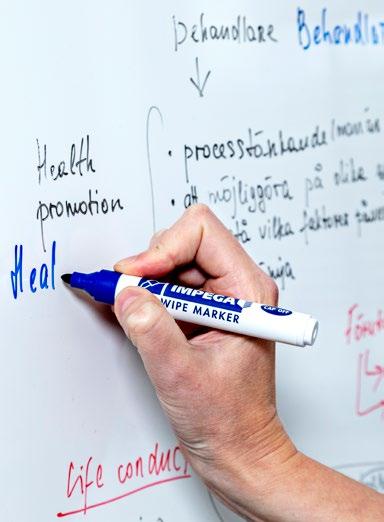 Behandlare Behandlar
Health
promotion
• processtänkande/
• att möjliggöra på olika
vilka faktorer
Heal
IMPEGA
WIPE MARKER
CAP OFF
Life conduc